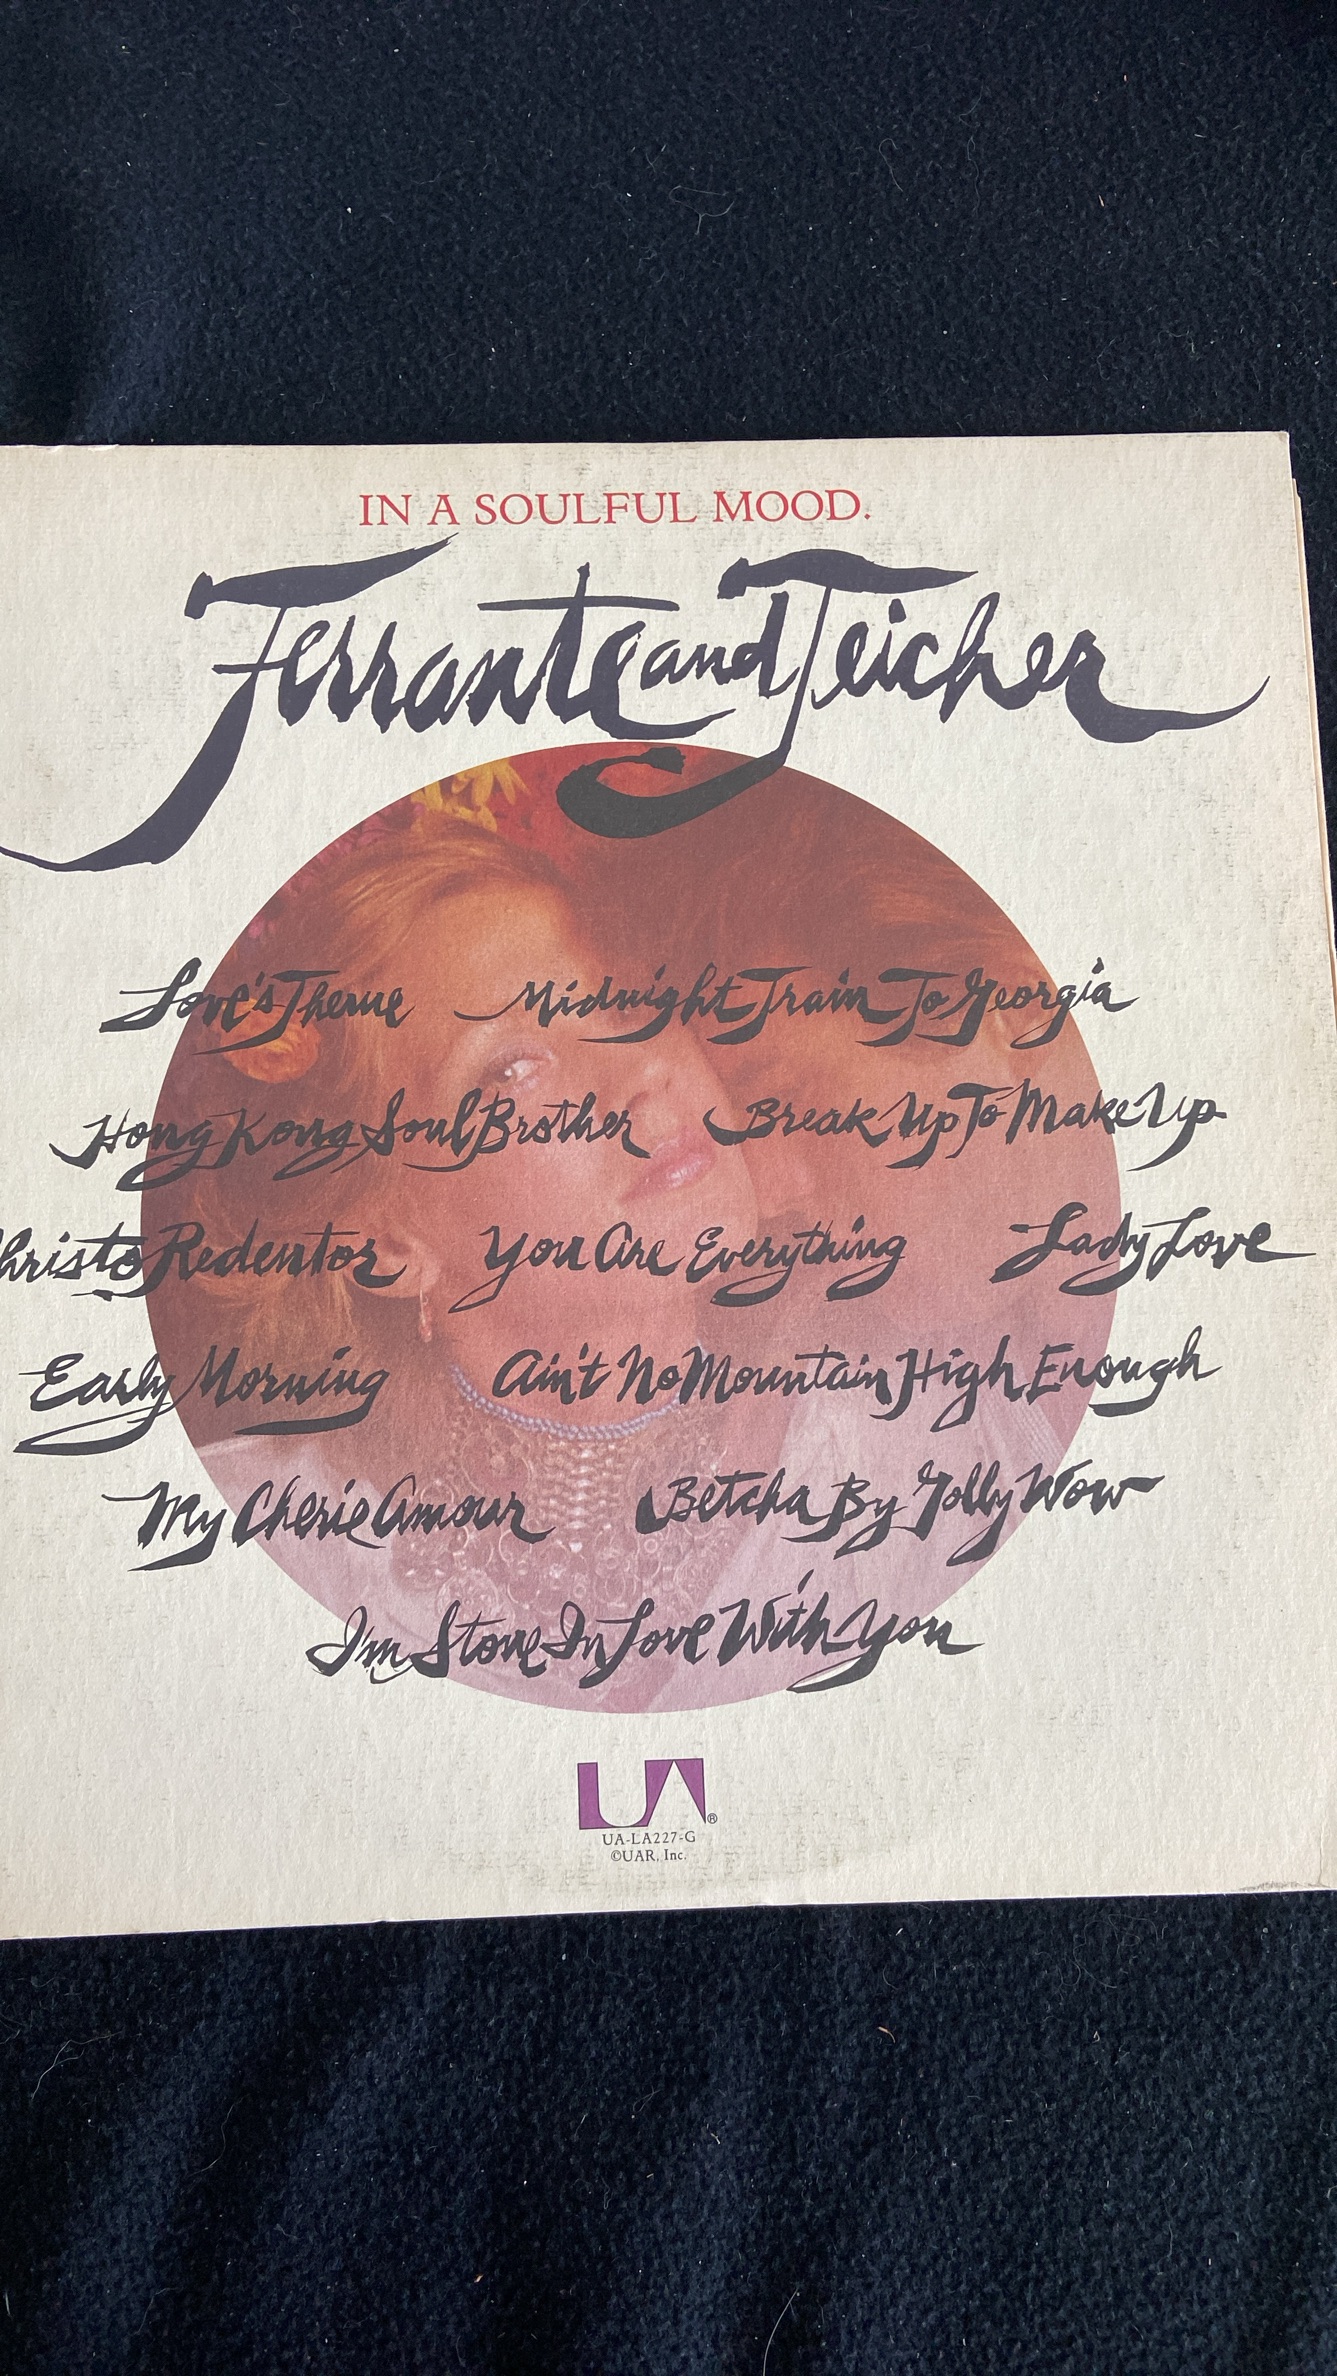 IN A SOULFUL MOOD.
Ferrante and Teicher
Love's Theme Midnight Train To Georgia
Hong Kong Soul Brother Break Up To Make Up
hristo Redentor You Are Everything Lady Love
Early Morning Ain't No Mountain High Enough
My Cherie Amour Betcha By Golly Wow
I'm Stone In Love With You
UA®
UA-LA227-G
©UAR, Inc.